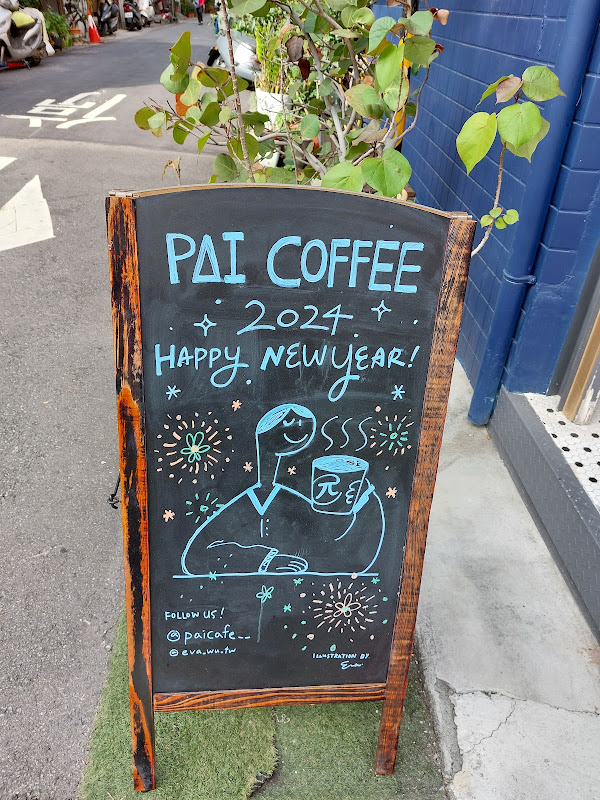 PAI COFFEE
2024
HAPPY NEW YEAR!
π
FOLLOW US!
@paicafe__
@eva.wu.tw
ILLUSTRATION BY
Eva